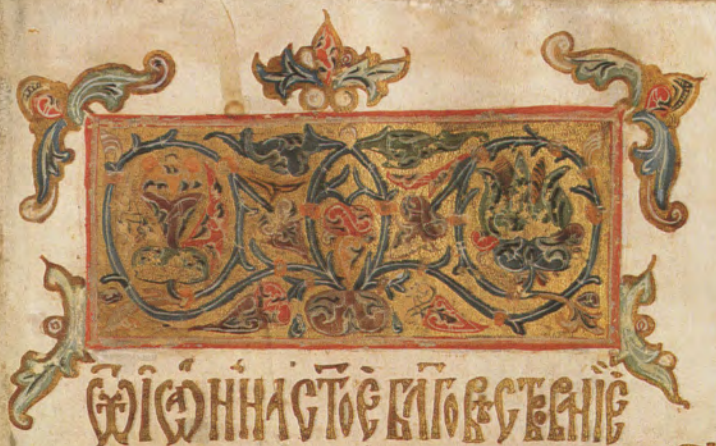 Ѿ ІѠАННА СТ҃ОЕ БЛ҃ГОВѢСТВОВАНЇЕ